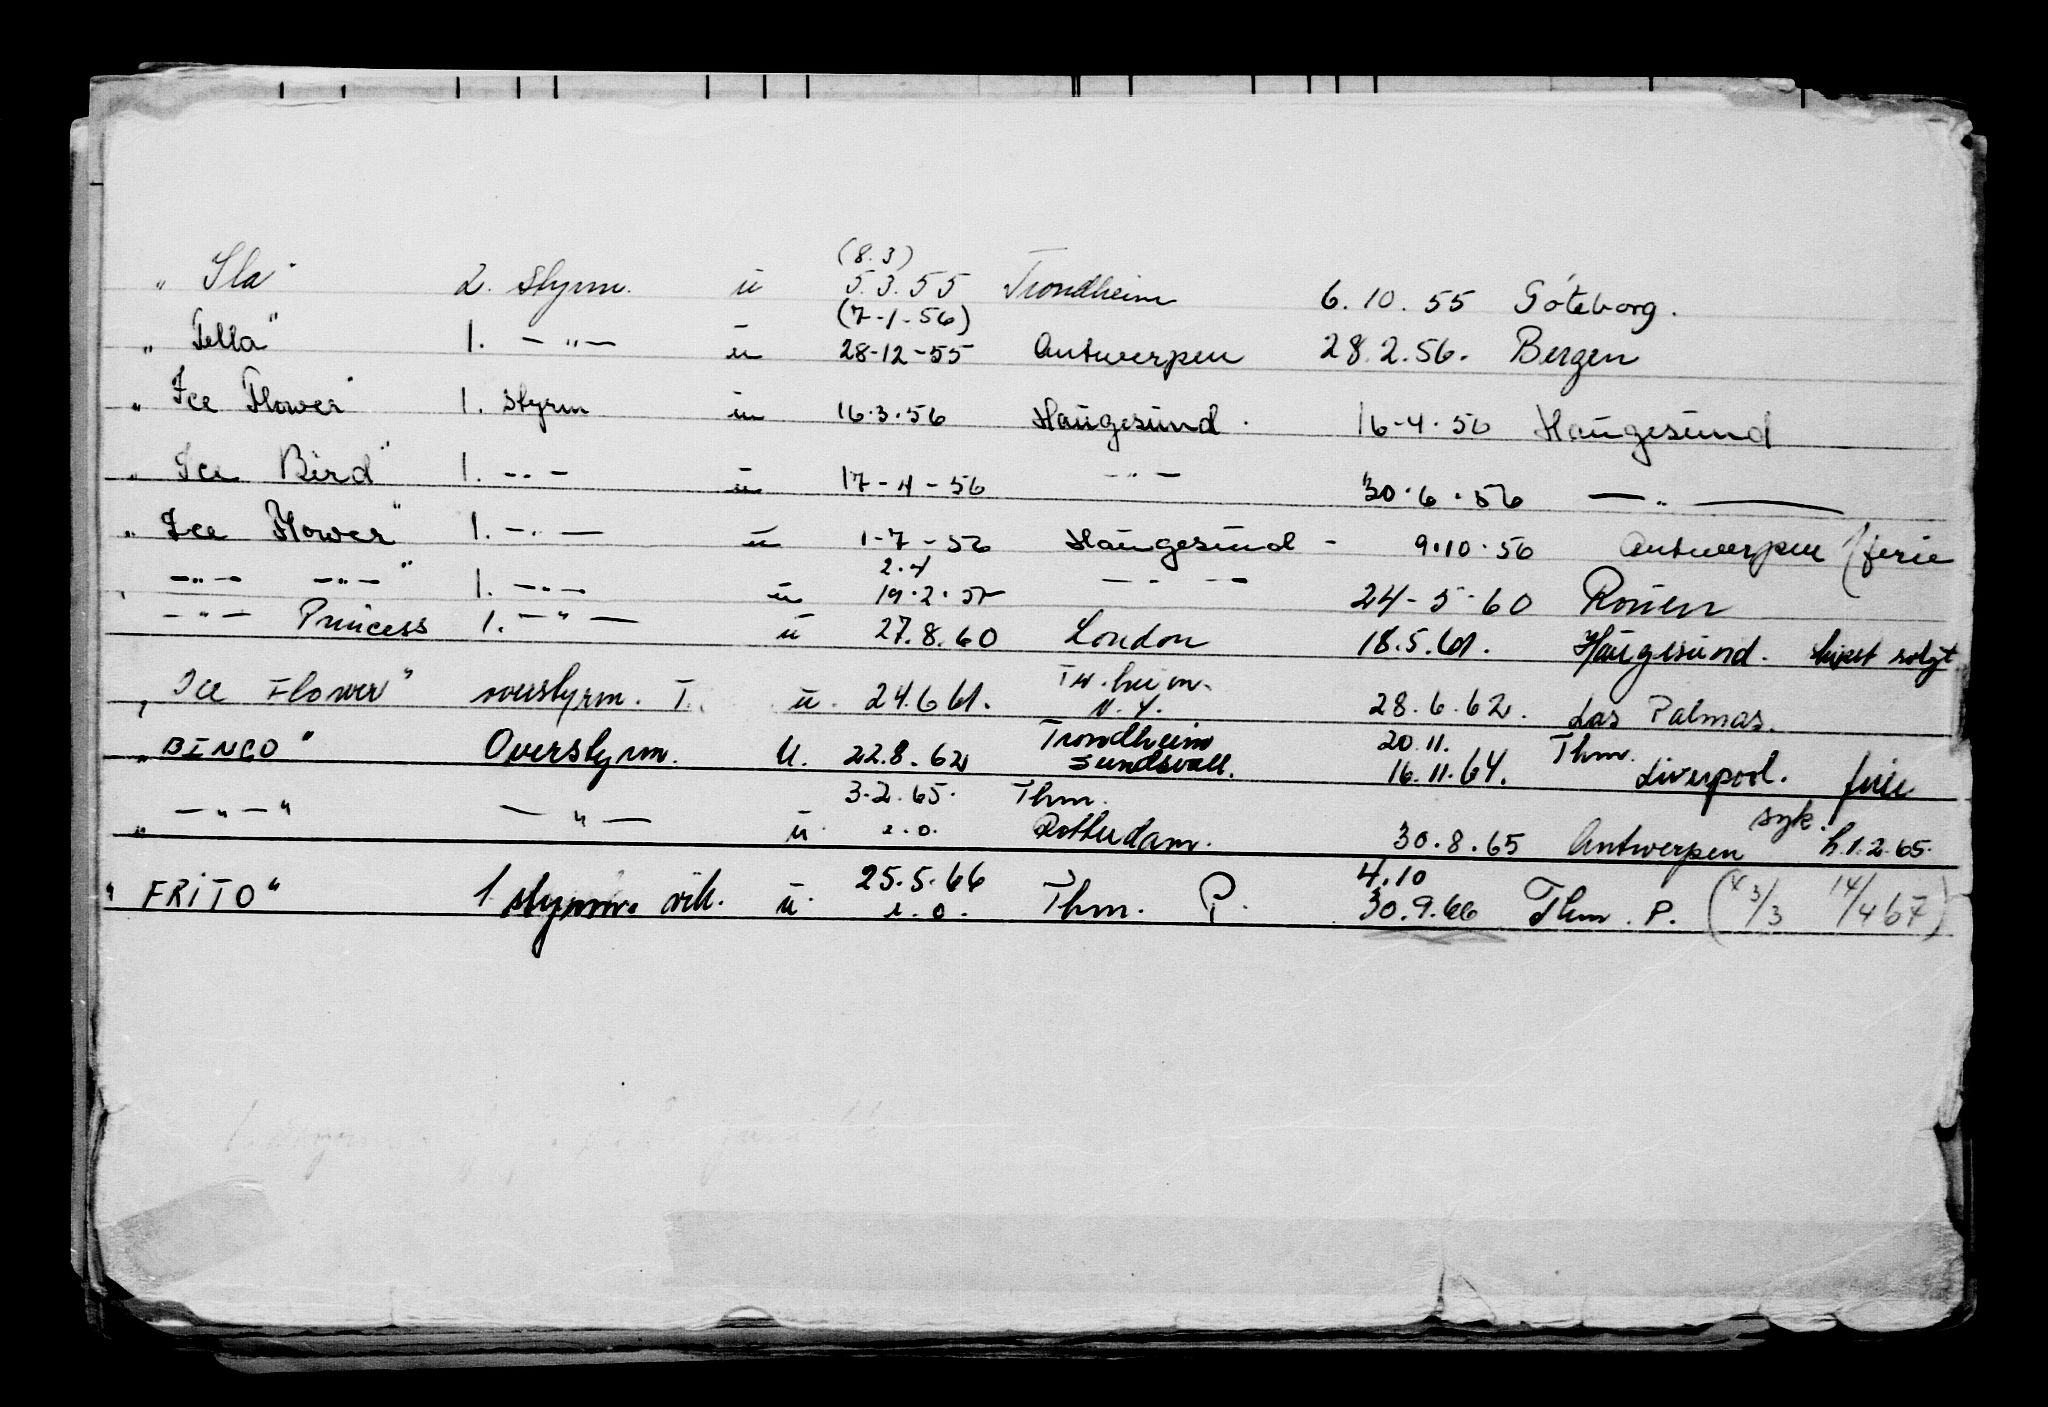 (8.3)
" Sla" 2. styrm. u 5.3.55 Trondheim 6.10.55 Göteborg.
(7-1-56)
" Tella" 1. -"- u 28-12-55 Antwerpen 28.2.56. Bergen
" Ice Flower" 1. styrm u 16.3.56 Haugesund. 16-4.56 Haugesund
" Ice Bird" 1. -"- u 17-4-56 -"- 30.6.56 -"-
" Ice Flower" 1. -"- u 1-7-56 Haugesund - 9.10.56 Antwerpen (ferie
2.4
-"- -"-" 1. -"- u 19.2.57 -"- 24-5-60 Rouen
-"- Princess 1. -"- u 27.8.60 London 18.5.61. Haugesund. skipet solgt
Tr.heim.
" Ice Flower" overstyrm. I. u. 24.6.61. N.Y. 28.6.62. Las Palmas.
Trondheim 20.11. Thm.
" BINGO" Overstyrm. U. 22.8.62 Sundsvall. 16.11.64. Liverpool. ferie
3.2.65. Thm. syk.
" -"-" -"- u. s.o. Rotterdam. 30.8.65 Antwerpen h.1.2.65.
25.5.66 4.10
" FRITO" 1 styrm. vik. u. s.o. Thm. P. 30.9.66 Thm. P. (3/3 14/4 67)